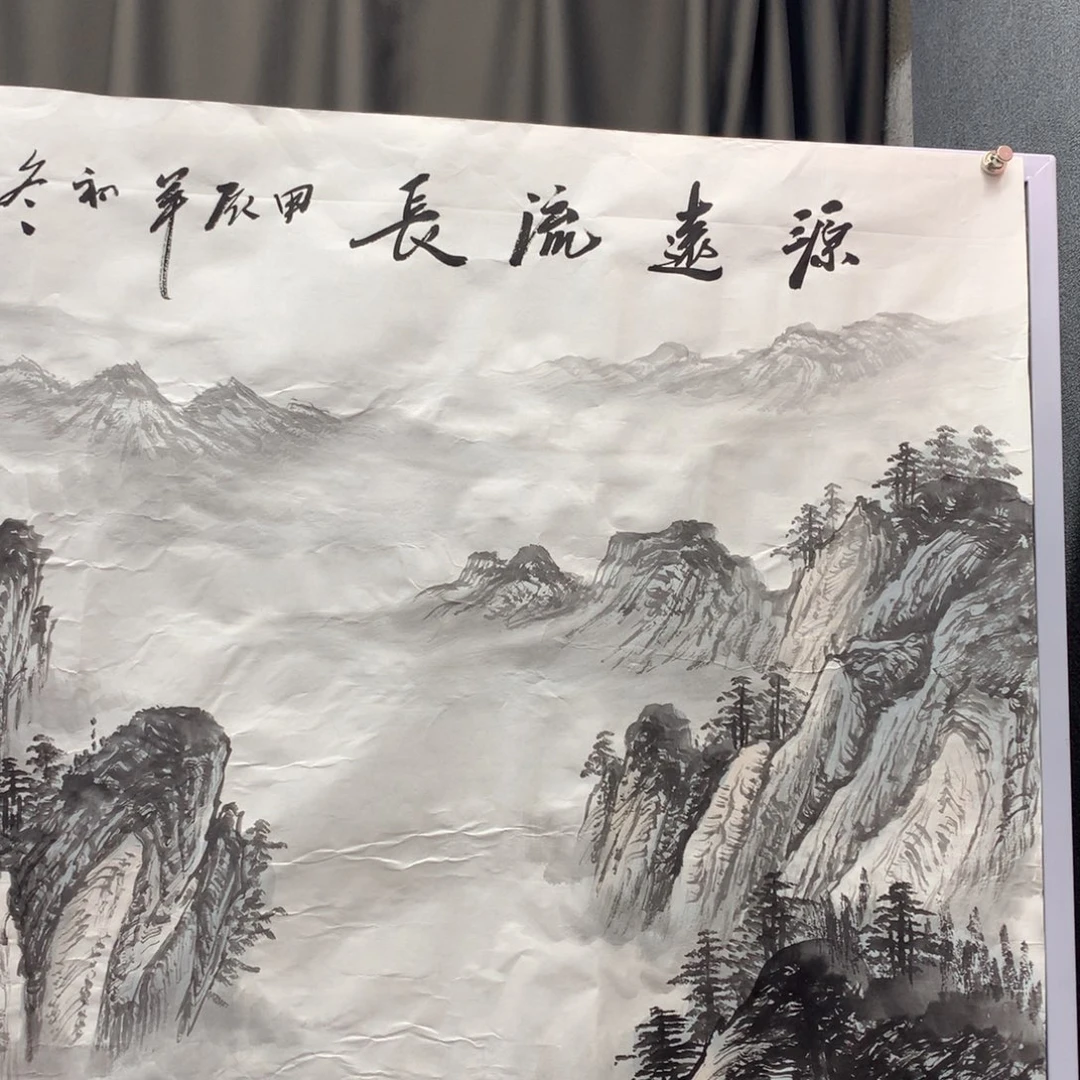 源遠流長 甲辰年初冬